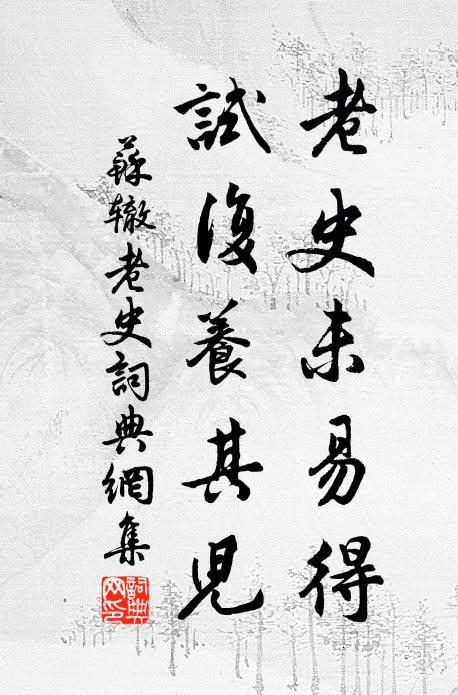 老史未易得
試復養其兒
蘇辙老史詞典網集
詞典網印